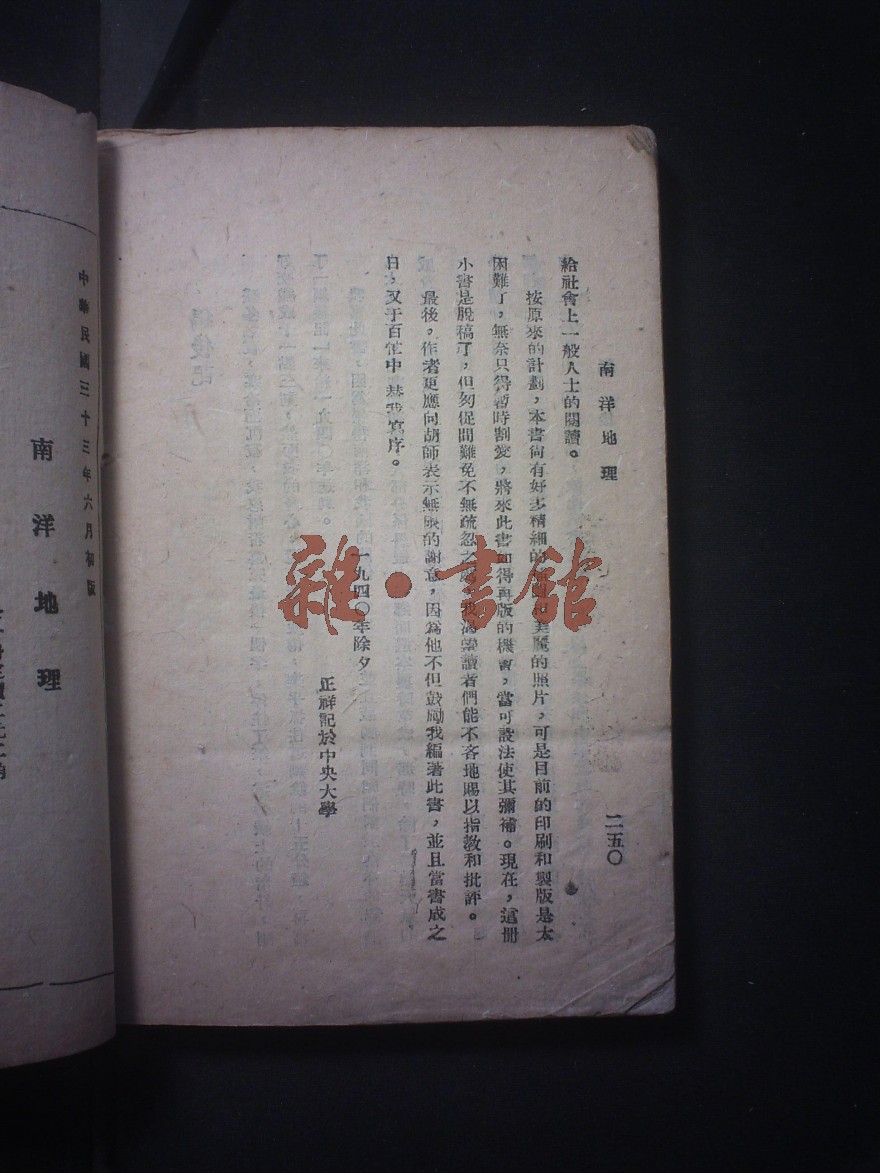 南洋地理
二五〇
給社會上一般人士的閱讀。
按原來的計劃，本書尙有好多精細的和美麗的照片，可是目前的印刷和製版是太
困難了，無奈只得暫時割愛，將來此書如得再版的機會，當可設法使其彌補。現在，這冊
小書是脫稿了，但匆促間難免不無疏忽之處，我渴望讀者們能不吝地賜以指教和批評。
最後，作者更應向胡師表示無限的謝意，因為他不但鼓勵我編著此書，並且當書成之
日，又于百忙中替我寫序。
一九四〇年除夕
正祥記於中央大學
中華民國三十三年六月初版
南洋地理
雜·書館